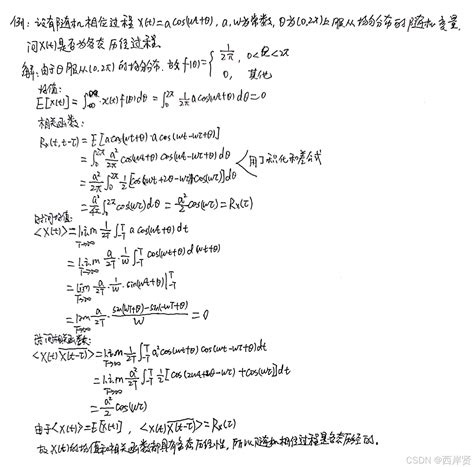 例:设有随机相位过程 X(t)=a cos(ωt+θ), a,ω为常数,θ为(0,2π)上服从均匀分布的随机变量,
问X(t)是否为各态历经过程.
解:由于θ服从(0,2π)的均匀分布,故f(θ)={ 1/2π, 0<θ<2π
0, 其他
均值:
E[X(t)]=∫ x(t)f(θ)dθ=∫₀^2π 1/2π a cos(ωt+θ)dθ=0
相关函数:
Rx(t,t-τ)=E[a cos(ωt+θ)·a cos(ωt-ωτ+θ)]
=∫₀^2π a²/2π cos(ωt+θ) cos(ωt-ωτ+θ)dθ
=a²/2π ∫₀^2π 1/2[cos(2ωt+2θ-ωτ)+cos(ωτ)]dθ 用了积化和差公式
=a²/4π ∫₀^2π cos(ωτ)dθ=a²/2 cos(ωτ)=Rx(τ)
时间均值:
<X(t)>=l.i.m T→∞ 1/2T ∫_-T^T a cos(ωt+θ)dt
=l.i.m T→∞ a/2T ∫_-T^T 1/ω cos(ωt+θ)d(ωt+θ)
=lim T→∞ a/2T · 1/ω · sin(ωt+θ)|_-T^T
=lim T→∞ a/2T · sin(ωT+θ)-sin(-ωT+θ)/ω=0
时间相关函数:
<X(t)X(t-τ)>=l.i.m T→∞ 1/2T ∫_-T^T a² cos(ωt+θ) cos(ωt-ωτ+θ)dt
=l.i.m T→∞ a²/2T ∫_-T^T 1/2[cos(2ωt+2θ-ωτ)+cos(ωτ)]dt
=a²/2 cos(ωτ)
由于<X(t)>=E[X(t)], <X(t)X(t-τ)>=Rx(τ)
故X(t)的均值和相关函数都具有各态历经性,所以随机相位过程是各态历经的.
CSDN @西岸贤